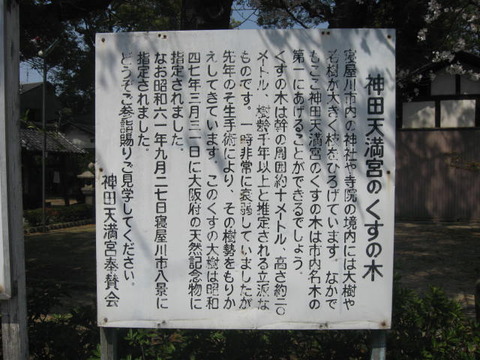 神田天満宮のくすの木
寝屋川市内の神社や寺院の境内には大樹や
老樹が大きく枝をひろげています。なかで
もここ神田天満宮のくすの木は市内名木の
第一にあげることができるでしょう。
くすの木は幹の周囲約十メートル・高さ約二〇
メートル・樹齢千年以上と推定される立派な
ものです。一時非常に衰弱していましたが
先年のそ生手術により、その樹勢をもりか
えしてきています。このくすの大樹は昭和
四七年三月三一日に大阪府の天然記念物に
指定されました。
なお昭和六一年九月二七日寝屋川市八景に
指定されました。
どうぞご参詣賜りご見学してください。
神田天満宮奉賛会